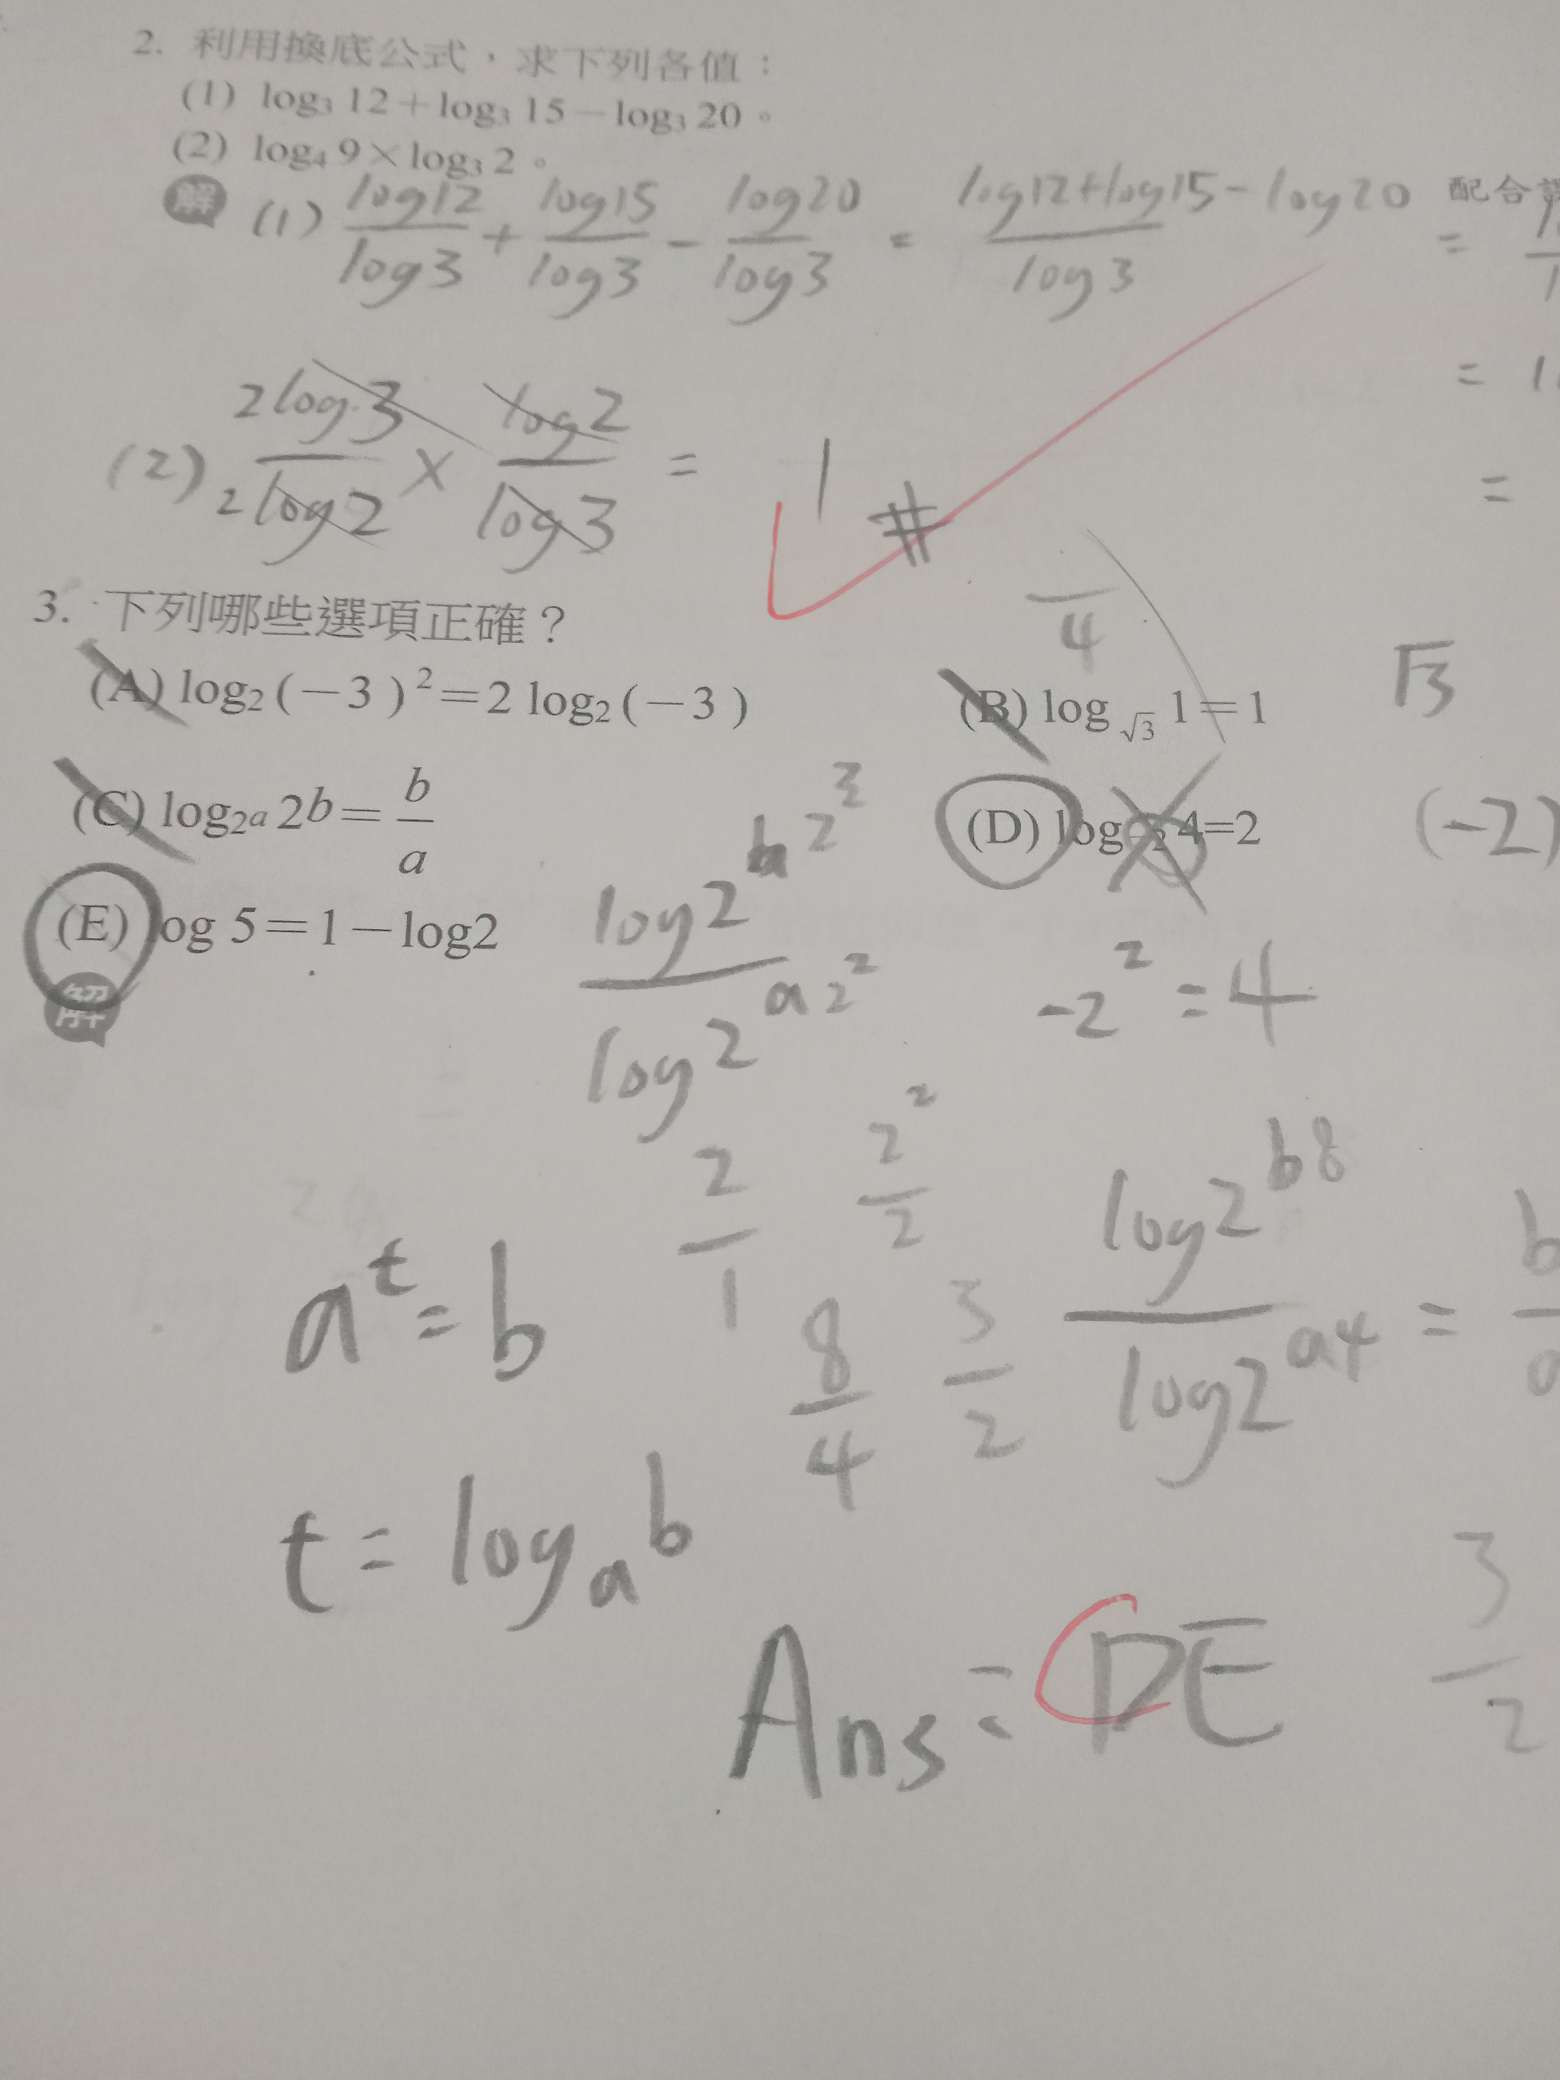 2. 利用換底公式，求下列各值：
(1) log₃ 12＋log₃ 15－log₃ 20。
(2) log₄ 9×log₃ 2。
解 (1) log12/log3 + log15/log3 - log20/log3 = (log12+log15-log20)/log3 =
配合
=
(2) 2log3/2log2 × log2/log3 = 1 #
=
3. 下列哪些選項正確？
4
(A) log₂ (－3)²＝2 log₂ (－3) (B) log_√3 1＝1 √3
(C) log_2a 2b＝b/a (D) log₋₂ 4=2 (-2)
(E) log 5＝1－log2
解
log2^b 2^3
log2^a 2^2
-2² = 4
2/1 2²/2
log2^b8 / log2^a4 = b
a^t = b
8/4 3/2
t = logₐ b
3/2
Ans = DE